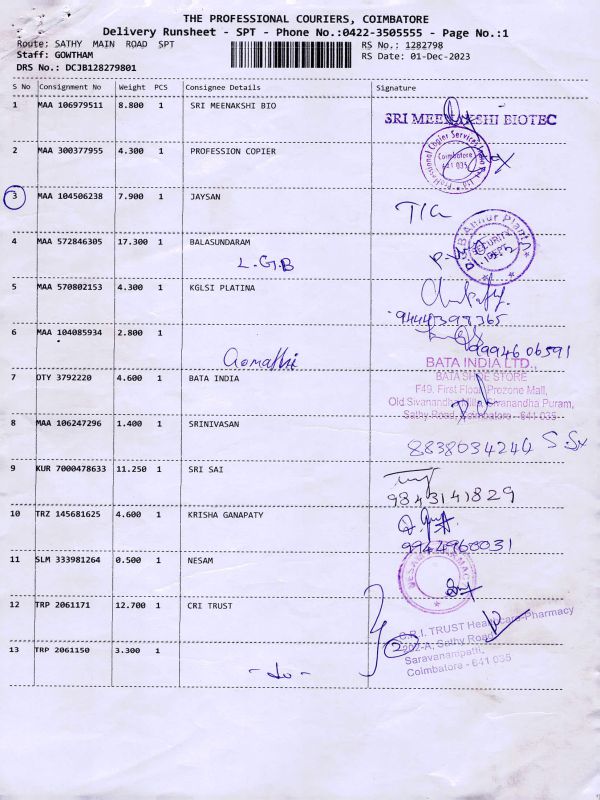 THE PROFESSIONAL COURIERS, COIMBATORE
Delivery Runsheet - SPT - Phone No.:0422-3505555 - Page No.:1
Route: SATHY MAIN ROAD SPT
RS No.: 1282798
Staff: GOWTHAM
RS Date: 01-Dec-2023
DRS No.: DCJB128279801
S No Consignment No Weight PCS Consignee Details Signature
1 MAA 106979511 8.800 1 SRI MEENAKSHI BIO
SRI MEENAKSHI BIOTEC
2 MAA 300377955 4.300 1 PROFESSION COPIER
Coimbatore
641 035
3 MAA 104506238 7.900 1 JAYSAN
4 MAA 572846305 17.300 1 BALASUNDARAM
L.G.B
SECURITY
DEPT
5 MAA 570802153 4.300 1 KGLSI PLATINA
9444397365
6 MAA 104085934 2.800 1
Gomathi
9994606591
BATA INDIA LTD.,
7 DTY 3792220 4.600 1 BATA INDIA
BATA SHOE STORE
F49, First Floor, Prozone Mall,
Old Sivanandha Mills, Sivanandha Puram,
Sathy Road, Coimbatore - 641 035
8 MAA 106247296 1.400 1 SRINIVASAN
8838034244
9 KUR 7000478633 11.250 1 SRI SAI
9843141829
10 TRZ 145681625 4.600 1 KRISHA GANAPATY
9944968031
11 SLM 333981264 0.500 1 NESAM
12 TRP 2061171 12.700 1 CRI TRUST
C.R.I. TRUST Healthcare-Pharmacy
Sathy Road
Saravanampatti,
Coimbatore - 641 035
2
13 TRP 2061150 3.300 1
- do -